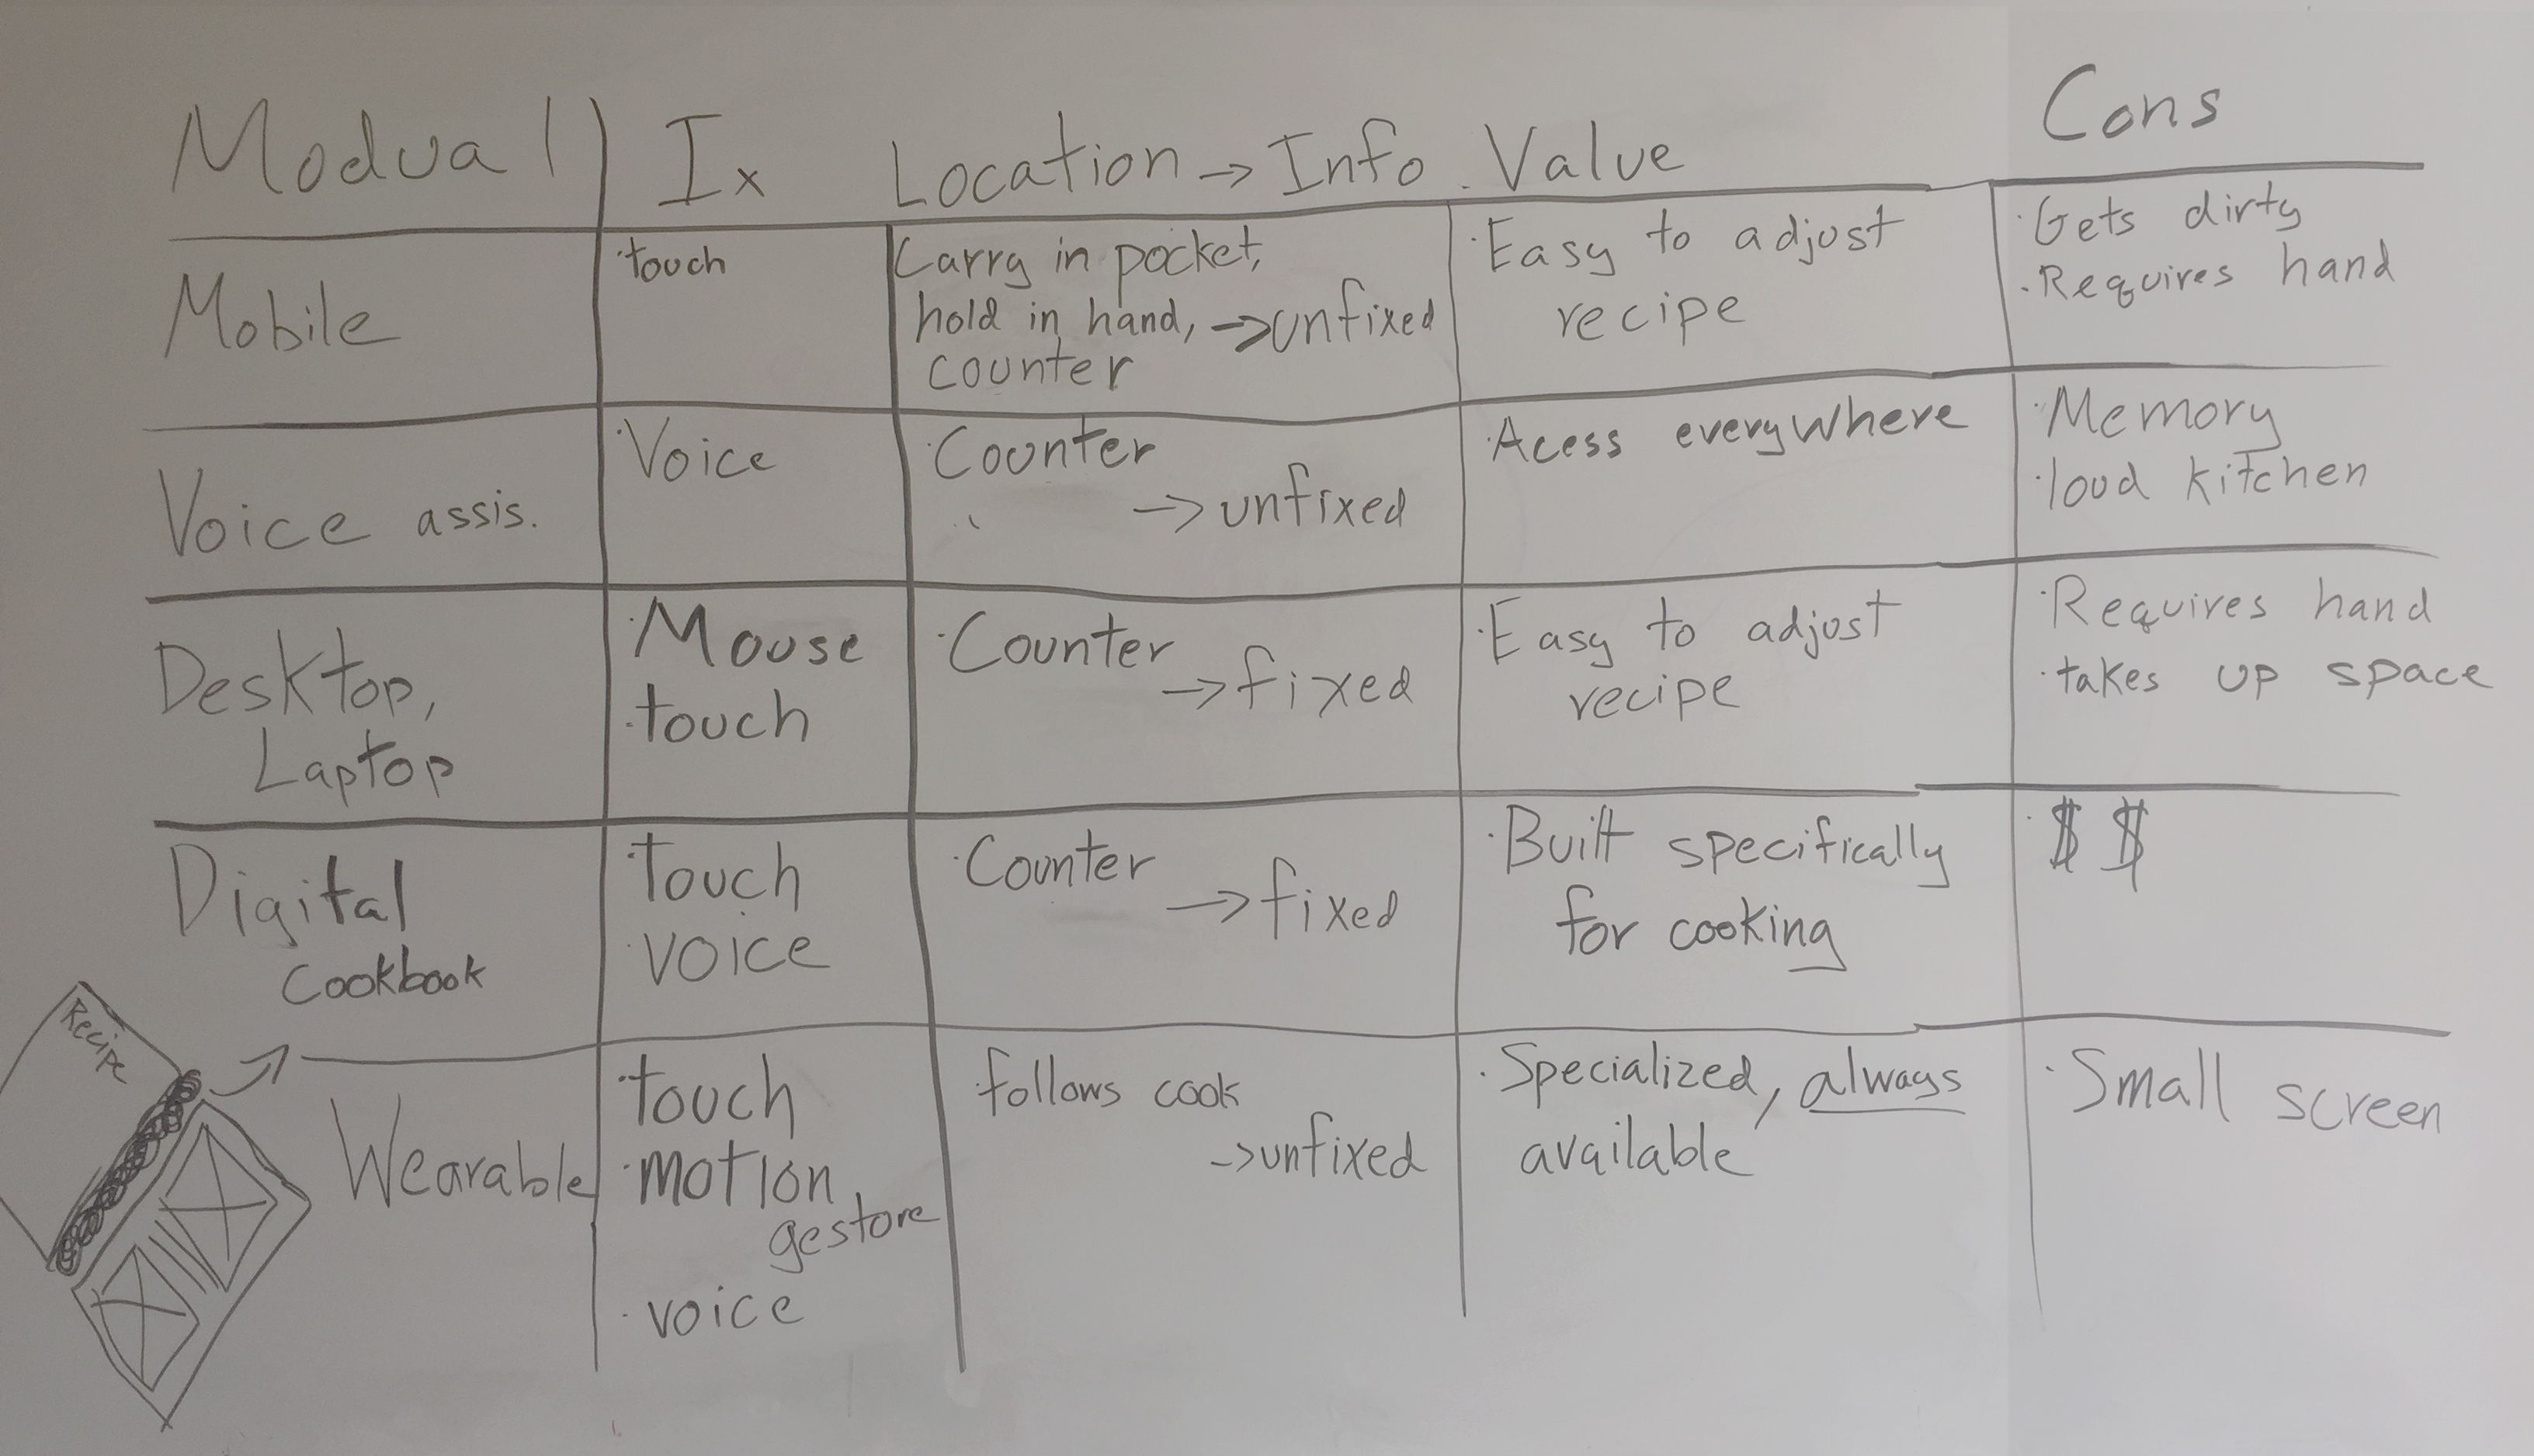 Modual Ix Location → Info Value Cons
Mobile
·touch
Carry in pocket,
hold in hand, → unfixed
counter
·Easy to adjust
recipe
·Gets dirty
·Requires hand
Voice assis.
·Voice
·Counter
→ unfixed
·Acess everywhere
·Memory
·loud kitchen
Desktop,
Laptop
·Mouse
·touch
·Counter
→ fixed
·Easy to adjust
recipe
·Requires hand
·takes up space
Digital
Cookbook
·Touch
·voice
·Counter
→ fixed
·Built specifically
for cooking
·$ $
Recipe
Wearable
·touch
·motion
gesture
·voice
·follows cook
→ unfixed
·Specialized, always
available
·Small screen